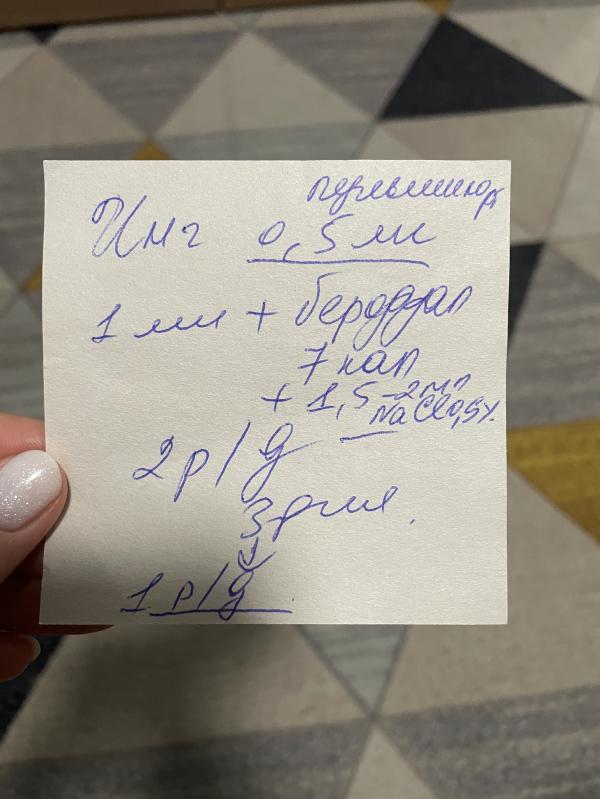 пульмикорт
Инг 0,5 мл
1 мл + беродуал
7 кап
+ 1,5-2мл
NaCl 0,9%.
2р/д
3 дня.
1р/д.